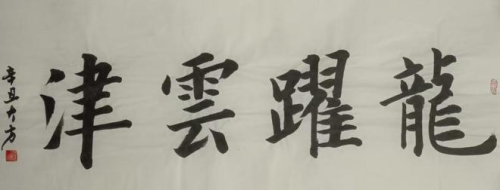 龍躍雲津
辛丑大方